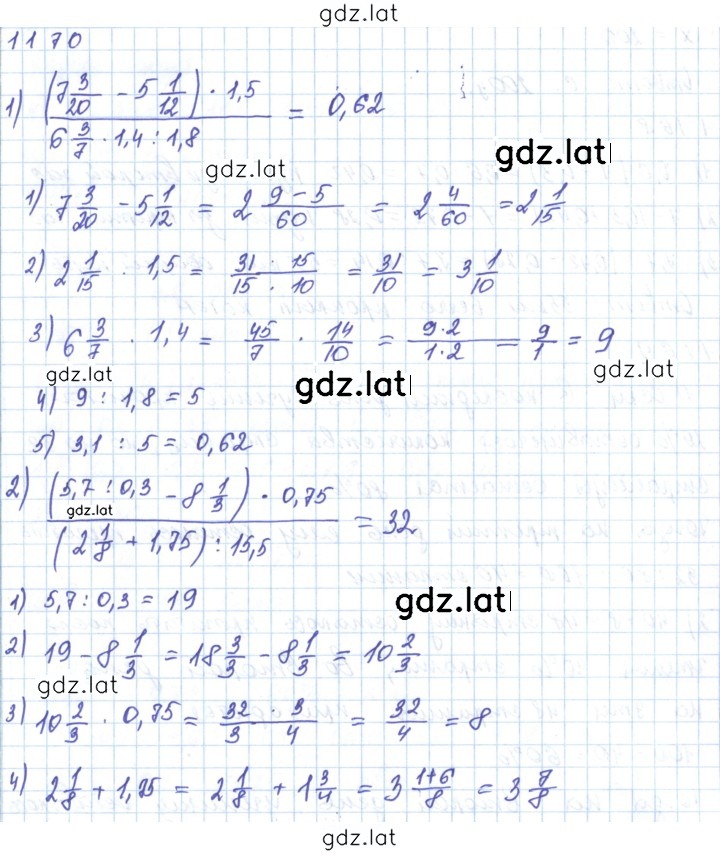 gdz.lat
1170
1) ((7 3/20 - 5 1/12) · 1,5)/(6 3/7 · 1,4 : 1,8) = 0,62
gdz.lat
gdz.lat
1) 7 3/20 - 5 1/12 = 2 (9-5)/60 = 2 4/60 = 2 1/15
2) 2 1/15 · 1,5 = (31 · 15)/(15 · 10) = 31/10 = 3 1/10
3) 6 3/7 · 1,4 = 45/7 · 14/10 = (9·2)/(1·2) = 9/1 = 9
gdz.lat
gdz.lat
gdz.lat
4) 9 : 1,8 = 5
5) 3,1 : 5 = 0,62
2) ((5,7 : 0,3 - 8 1/3) · 0,75)/((2 1/8 + 1,75) : 15,5) = 32
gdz.lat
1) 5,7 : 0,3 = 19
gdz.lat
2) 19 - 8 1/3 = 18 3/3 - 8 1/3 = 10 2/3
gdz.lat
3) 10 2/3 · 0,75 = (32 · 3)/(3 4) = 32/4 = 8
4) 2 1/8 + 1,75 = 2 1/8 + 1 3/4 = 3 (1+6)/8 = 3 7/8
gdz.lat